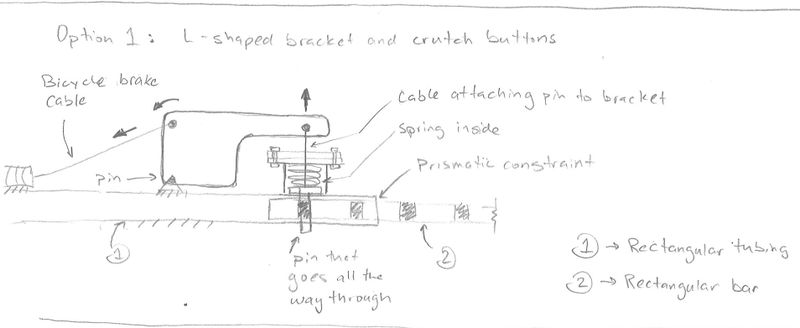 Option 1: L-shaped bracket and crutch buttons
Bicycle brake
cable
Cable attaching pin to bracket
Spring inside
Prismatic constraint
pin
1
2
pin that
goes all the
way through
1 → Rectangular tubing
2 → Rectangular bar